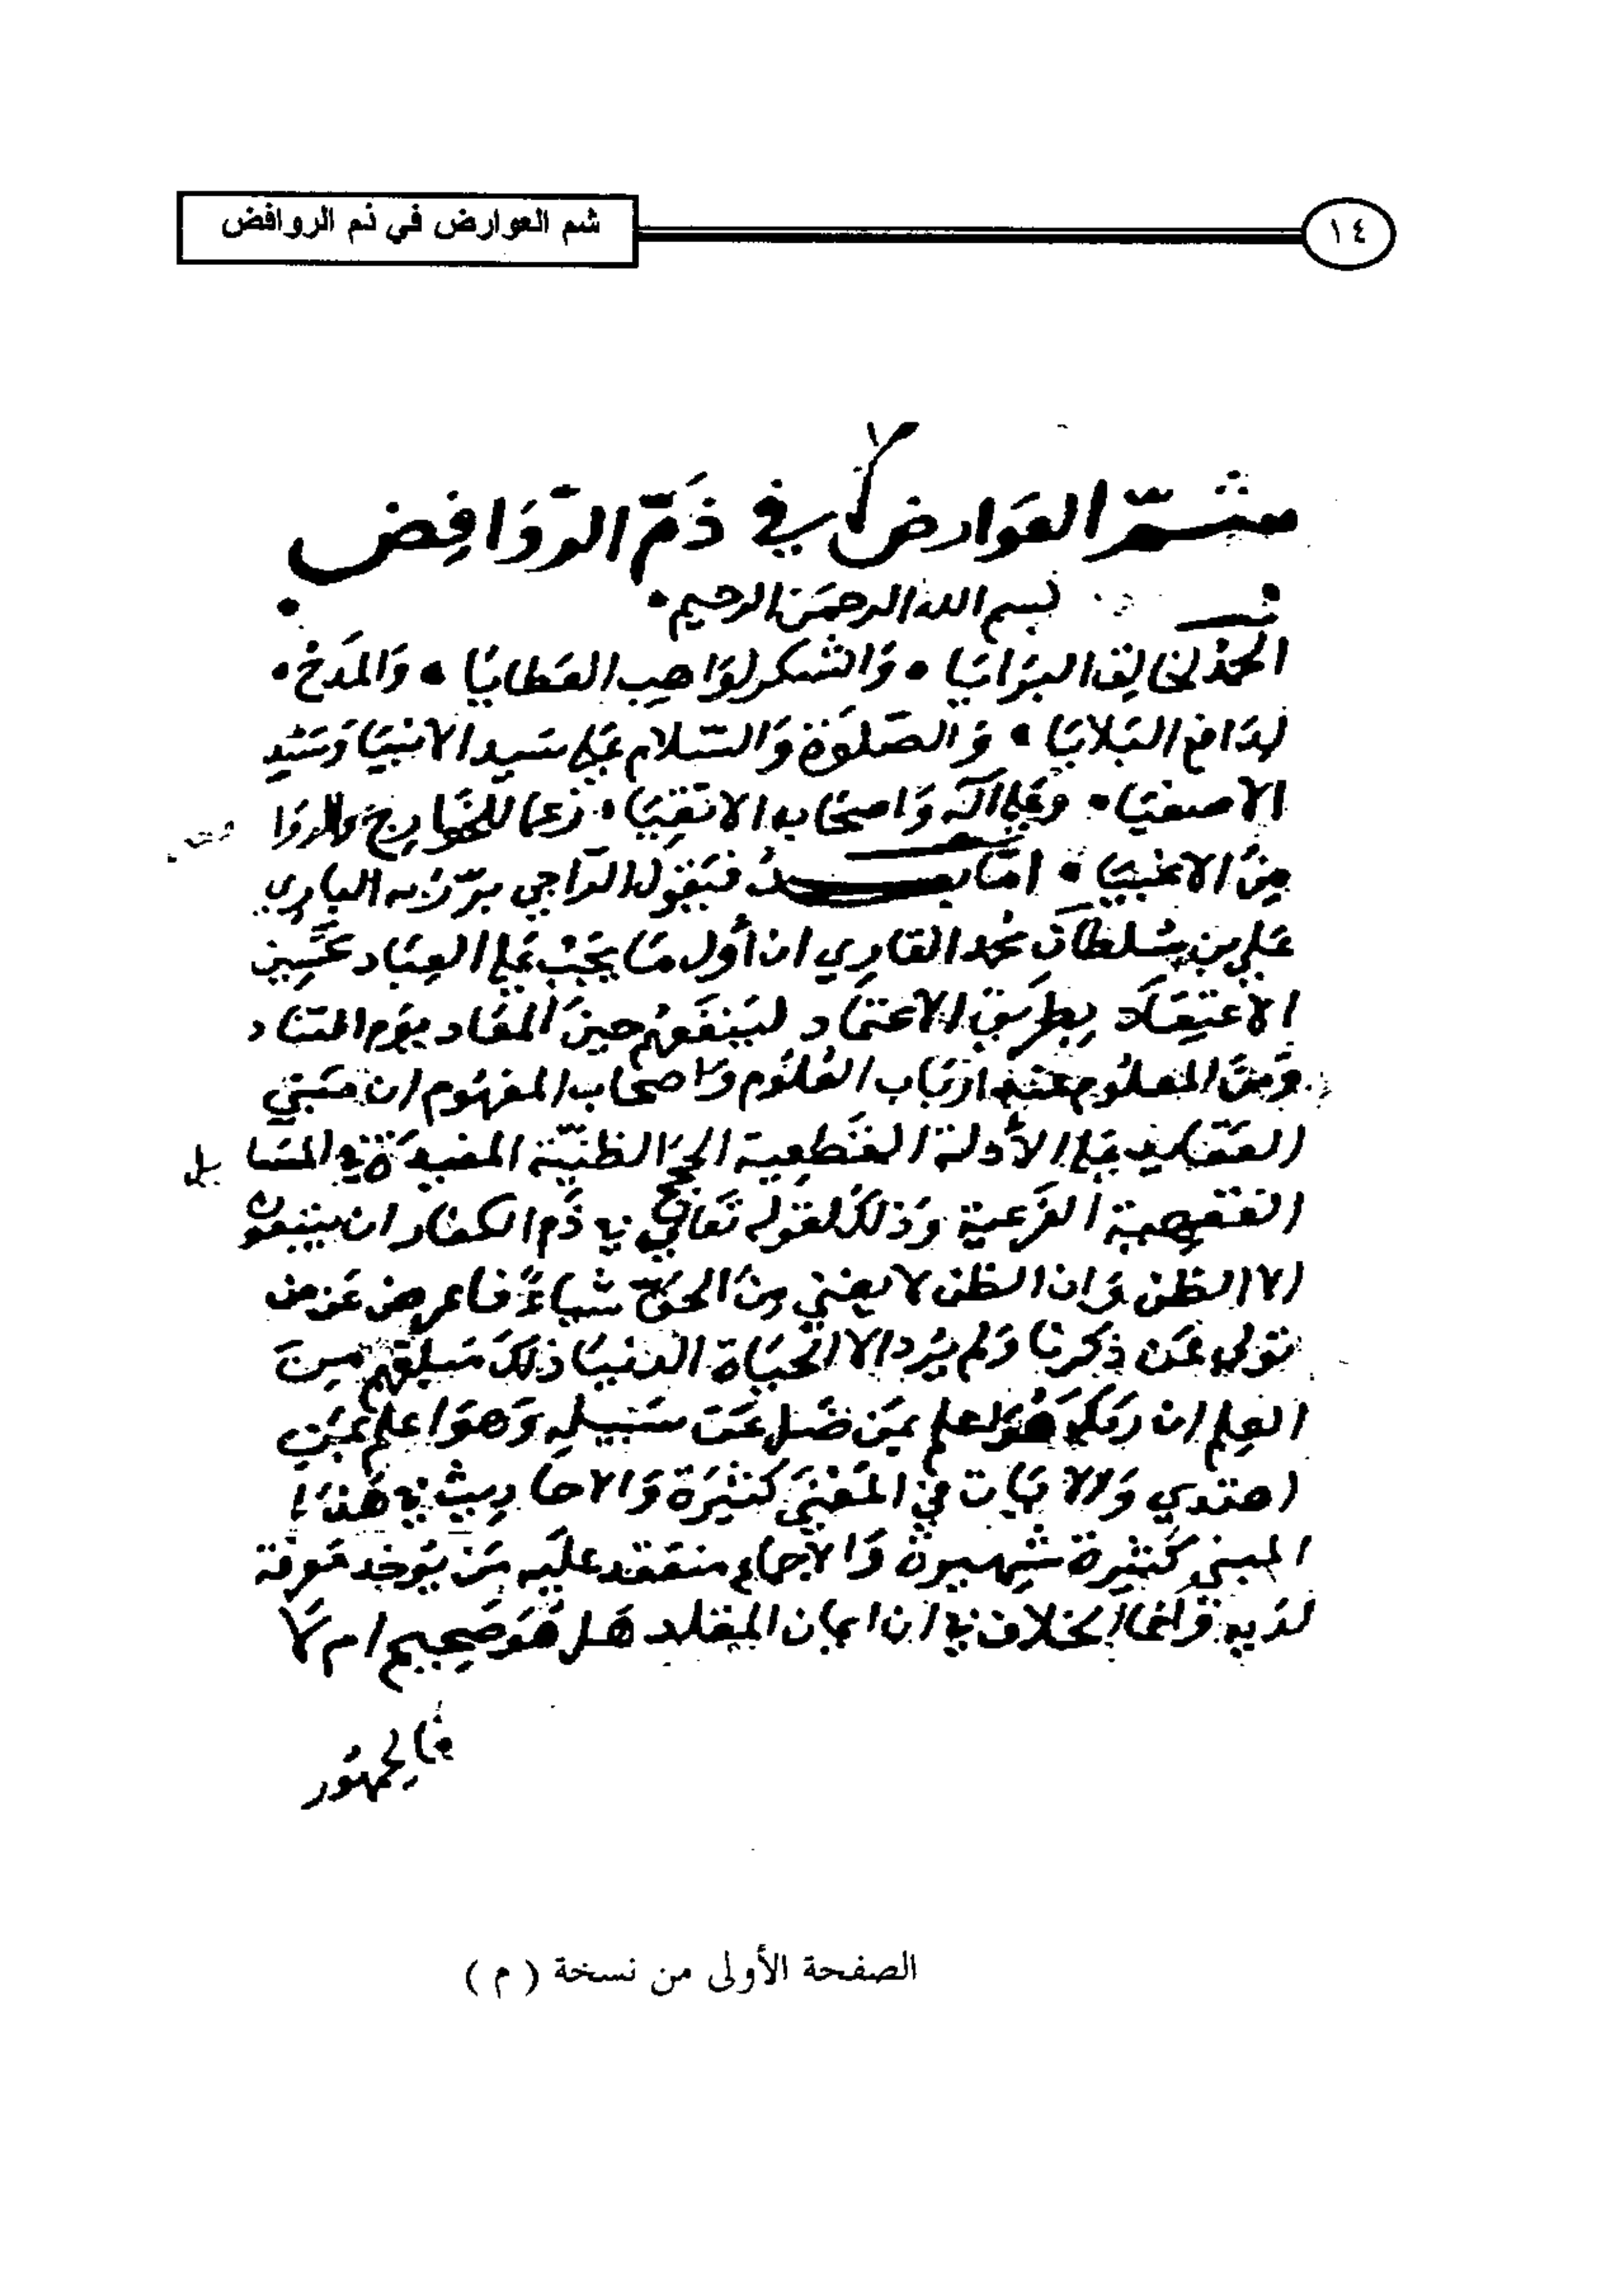 ١٤
شم العوارض في ذم الروافض
شم العوارض في ذَمّ الروَافِض
بسم الله الرحمَن الرحيم
الحمد لخالِق البرَايَا وَالشكر لوَاهِب العَطايَا وَالمدَح
لدَافع البَلايَا وَالصَلوَة وَالسّلام عَلى سَيد الانبيَا وَسَنَد
الاصفيَا وعَلى آله وَاصحَابه الاتقِيَا رَغما للخوَارِج والروَا
فض
مِنَ الاغبيَا امّا بعد فيَقول الرّاجي برّ رَبه البَارِي
عَلي بن سُلطَان محمد القارِي ان أول مَا يجَب عَلى العِبَاد تحسِين
الاعتِقَاد بِطريق الاعتماد ليَنفَعهُم حينَ المعَاد يوَم التنَاد
وَمِنَ المعلُوم عند ارْبَاب العُلوُم وَاصحَاب المفهُوم ان مَبني
العقَايد عَلى الأدلة القَطعِية لا الظَنيَّة المفيدَة في المسَا
يل
الفقهية الفَرعية وَذلكَ لقوله تعَالى في ذَم الكفار ان يتبعُون
الا الظن وَان الظن لا يغني مِنَ الحَق شيئاً فاعرض عَن من
تولى عَن ذِكرنا وَلم يُرد الا الحيَاة الدنيَا ذلكَ مَبلغهُم مِنَ
العِلم ان رَبكَ هُوَ اعلم بمَن ضَل عَن سَبيلهِ وَهوَ اعلم بمَن
اهتدي وَالايَات في المَعْنَى كثيرَة وَالاحَادِيث في هَذا
المبني كَثيرة شَهيرة وَالاجماع منعَقد عليَه مَن يُوخَد مَعرفة
لدَيه وَانما الخلاف في ان ايمان المقلد هَل هُوَ صَحِيح ام لا
فالجمهوُر
الصفحة الأولى من نسخة ( م )